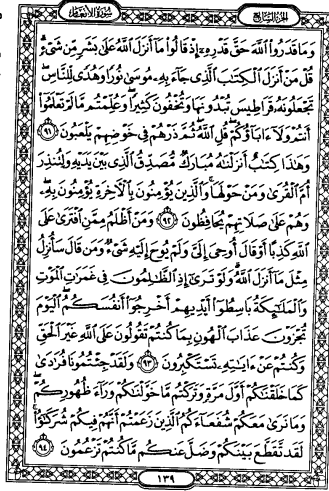 الجزء السابع سورة الأنعام
وَمَا قَدَرُوا۟ ٱللَّهَ حَقَّ قَدْرِهِۦٓ إِذْ قَالُوا۟ مَآ أَنزَلَ ٱللَّهُ عَلَىٰ بَشَرٍ مِّن شَىْءٍۗ
قُلْ مَنْ أَنزَلَ ٱلْكِتَٰبَ ٱلَّذِى جَآءَ بِهِۦ مُوسَىٰ نُورًا وَهُدًى لِّلنَّاسِۖ
تَجْعَلُونَهُۥ قَرَاطِيسَ تُبْدُونَهَا وَتُخْفُونَ كَثِيرًاۖ وَعُلِّمْتُم مَّا لَمْ تَعْلَمُوٓا۟
أَنتُمْ وَلَآ ءَابَآؤُكُمْۖ قُلِ ٱللَّهُۖ ثُمَّ ذَرْهُمْ فِى خَوْضِهِمْ يَلْعَبُونَ ٩١
وَهَٰذَا كِتَٰبٌ أَنزَلْنَٰهُ مُبَارَكٌ مُّصَدِّقُ ٱلَّذِى بَيْنَ يَدَيْهِ وَلِتُنذِرَ
أُمَّ ٱلْقُرَىٰ وَمَنْ حَوْلَهَاۚ وَٱلَّذِينَ يُؤْمِنُونَ بِٱلْءَاخِرَةِ يُؤْمِنُونَ بِهِۦۖ
وَهُمْ عَلَىٰ صَلَاتِهِمْ يُحَافِظُونَ ٩٢ وَمَنْ أَظْلَمُ مِمَّنِ ٱفْتَرَىٰ عَلَى
ٱللَّهِ كَذِبًا أَوْ قَالَ أُوحِىَ إِلَىَّ وَلَمْ يُوحَ إِلَيْهِ شَىْءٌ وَمَن قَالَ سَأُنزِلُ
مِثْلَ مَآ أَنزَلَ ٱللَّهُۗ وَلَوْ تَرَىٰٓ إِذِ ٱلظَّٰلِمُونَ فِى غَمَرَٰتِ ٱلْمَوْتِ
وَٱلْمَلَٰٓئِكَةُ بَاسِطُوٓا۟ أَيْدِيهِمْ أَخْرِجُوٓا۟ أَنفُسَكُمُۖ ٱلْيَوْمَ
تُجْزَوْنَ عَذَابَ ٱلْهُونِ بِمَا كُنتُمْ تَقُولُونَ عَلَى ٱللَّهِ غَيْرَ ٱلْحَقِّ
وَكُنتُمْ عَنْ ءَايَٰتِهِۦ تَسْتَكْبِرُونَ ٩٣ وَلَقَدْ جِئْتُمُونَا فُرَٰدَىٰ
كَمَا خَلَقْنَٰكُمْ أَوَّلَ مَرَّةٍ وَتَرَكْتُم مَّا خَوَّلْنَٰكُمْ وَرَآءَ ظُهُورِكُمْۖ
وَمَا نَرَىٰ مَعَكُمْ شُفَعَآءَكُمُ ٱلَّذِينَ زَعَمْتُمْ أَنَّهُمْ فِيكُمْ شُرَكَٰٓؤُا۟ۚ
لَقَد تَّقَطَّعَ بَيْنَكُمْ وَضَلَّ عَنكُم مَّا كُنتُمْ تَزْعُمُونَ ٩٤
١٣٩